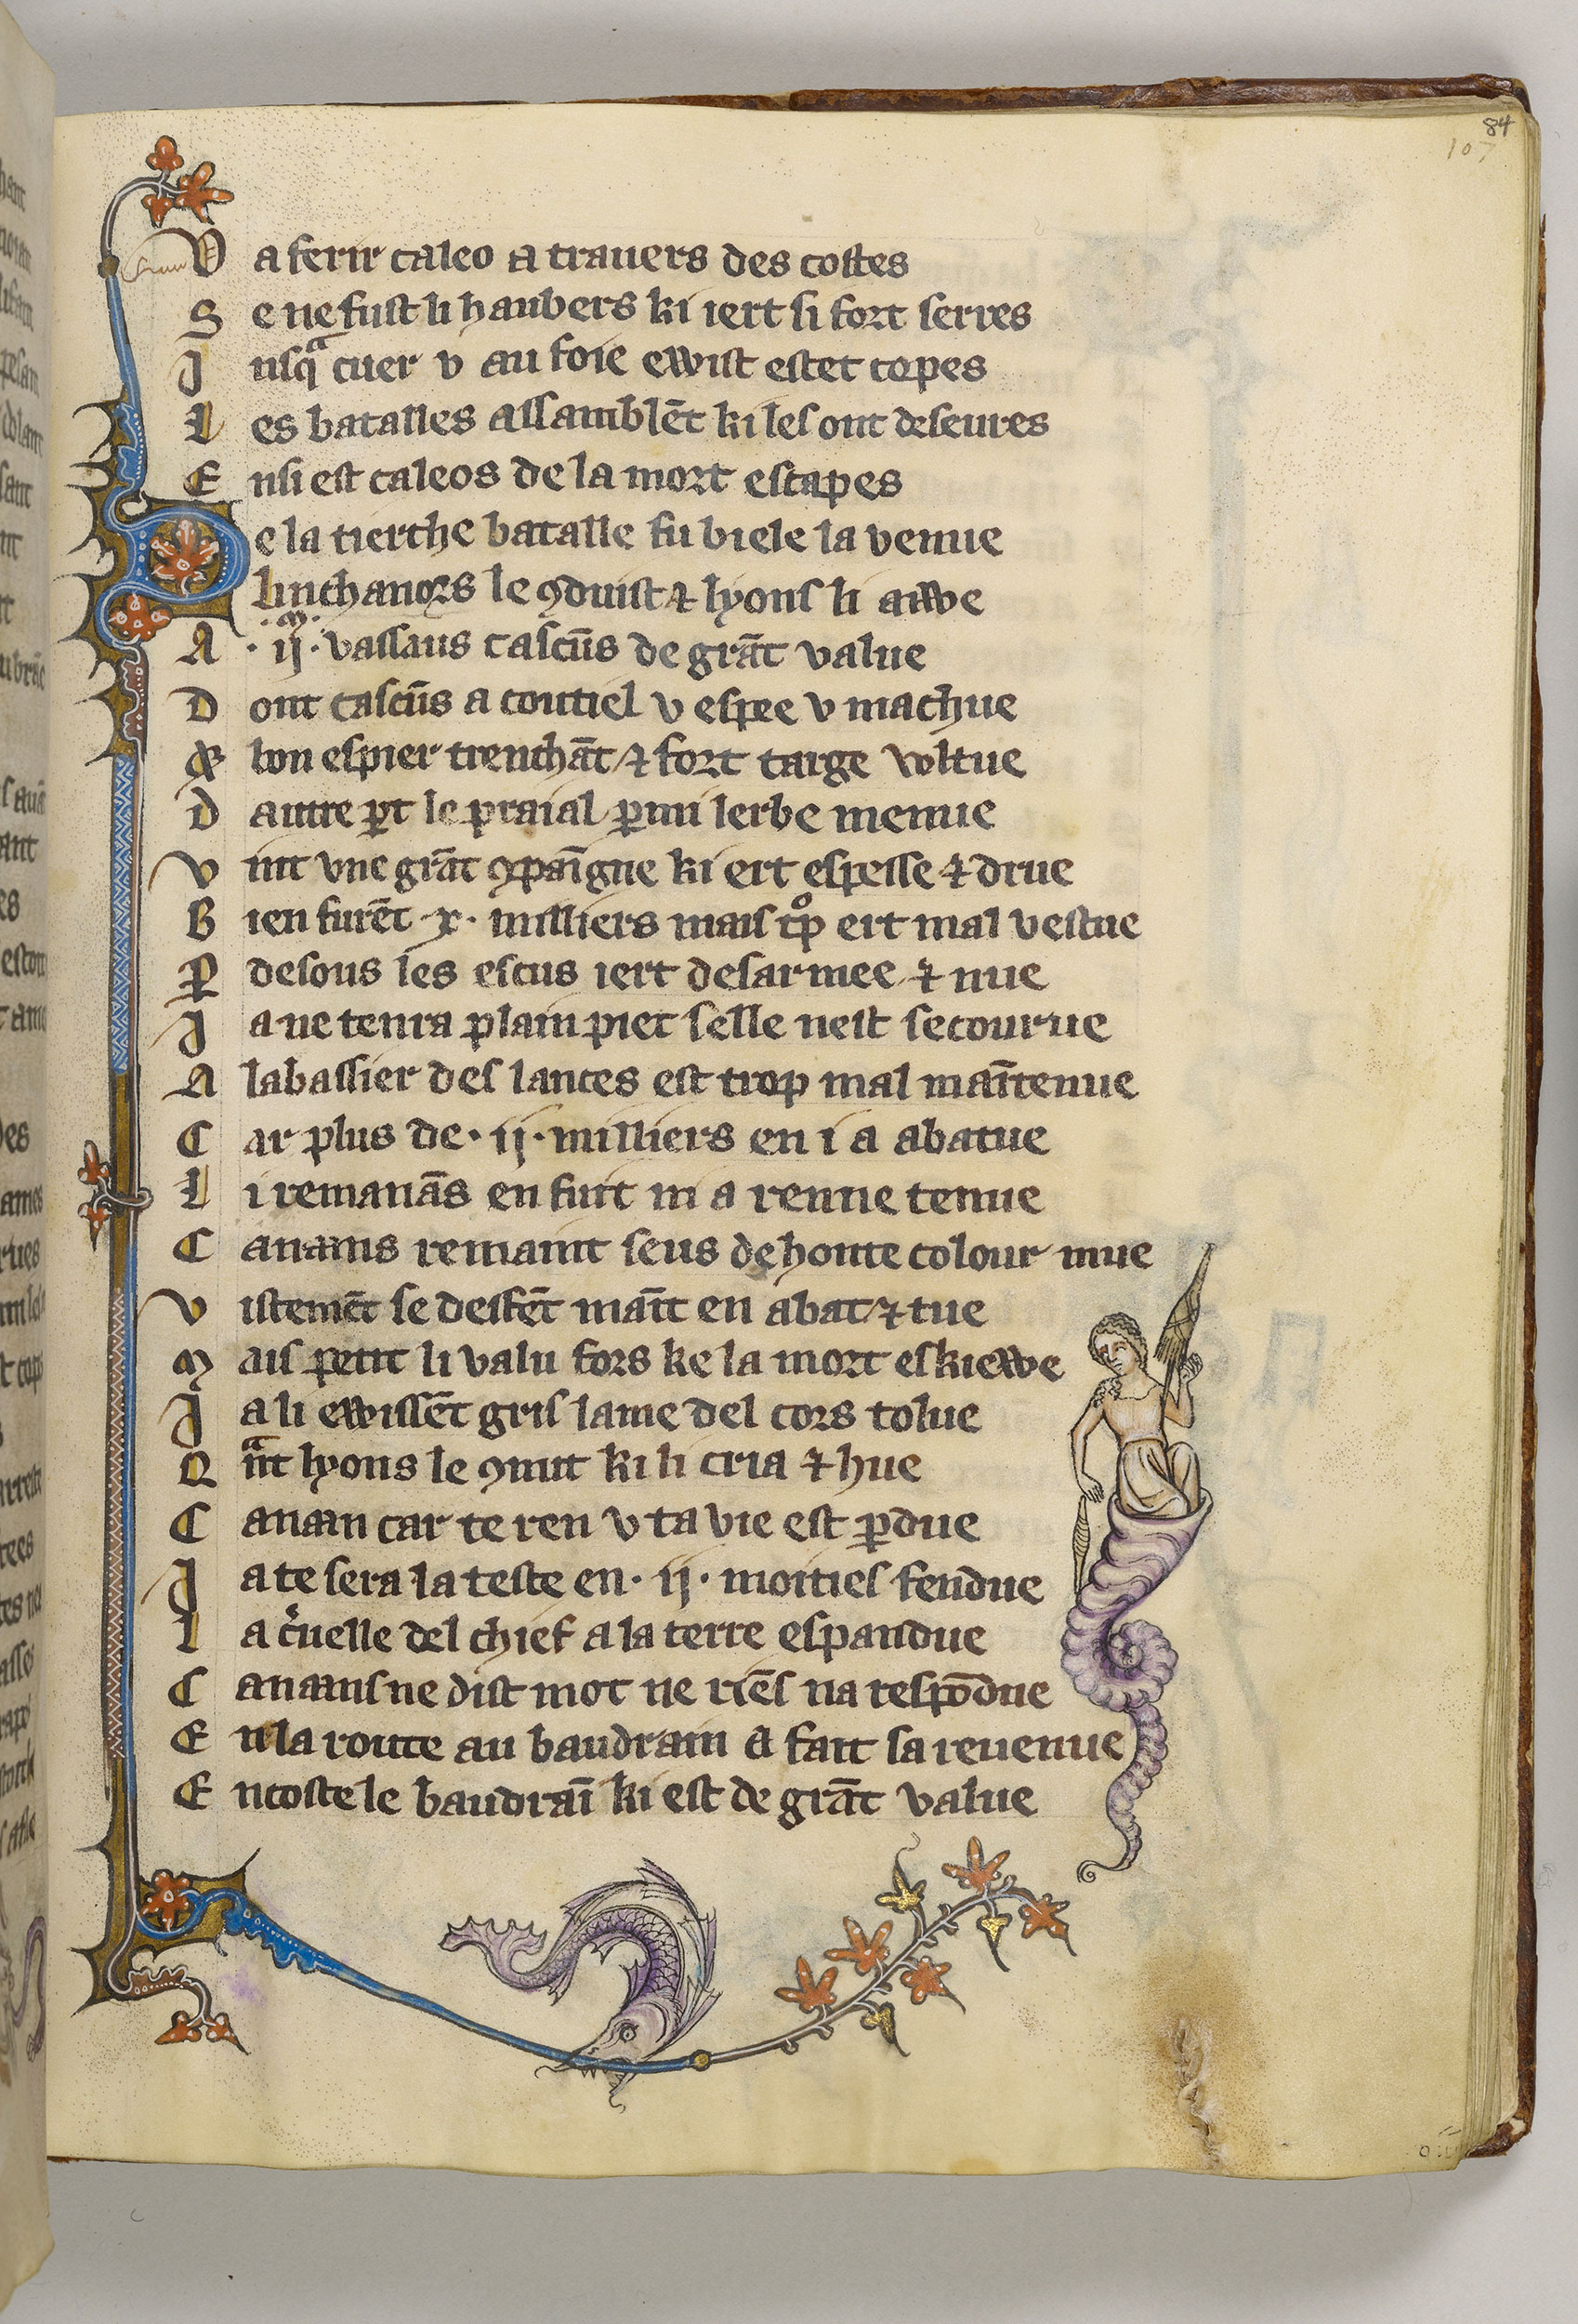 84
107
V a ferir caleo a trauers des costes
S e ne fust li haubers ki iert si fort serres
J usqᵃ cuer v au foie ewist estet copes
L es batalles assamblēt ki les ont deseures
E nsi est caleos de la mort escapes
D e la tierche batalle fu biele la venue
Linchanors le ꝯduist ⁊ lyons li aiwe
A .ij.ᵐ. vassaus cascūs de grāt value
D ont cascūs a coutiel v espee v machue
⁊ bon espier trenchāt ⁊ fort targe voltue
D autre ꝑt le praial ꝑmi lerbe menue
V int vne grāt ꝯpaīgne ki ert espesse ⁊ drue
B ien furēt .x. milliers mais tͦp ert mal vestue
P desous les escus iert desarmee ⁊ nue
J a ne tenra plain piet selle nest secourue
A labassier des lances est trop mal maītenue
C ar plus de .ij. milliers en i a abatue
L i remanās en fuit ni a renne tenue
C anaans remaint seus de honte colour mue
V istemēt se desfēt maīt en abat ⁊ tue
M ais petit li valu fors ke la mort eskiewe
J a li ewissēt gris lame del cors tolue
Q ᵃnt lyons le ꝯnut ki li cria ⁊ hue
C anaan car te ren v ta vie est ꝑdue
J a te sera la teste en .ij. moities fendue
L a cͥuelle del chief a la terre espandue
C anaans ne dist mot ne riēs na respōdue
E n la route au baudrain a fait sa reuenue
E ncoste le baudraī ki est de grāt value